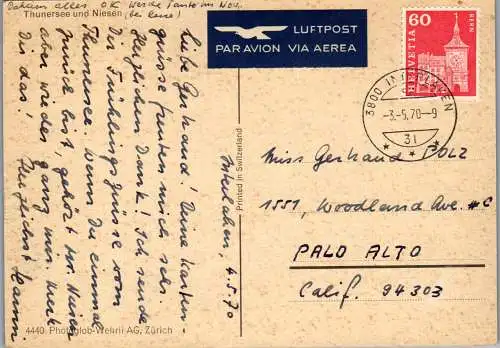 Daheim alles OK Werde Tante im Nov.
Thunersee und Niesen (bei Lene!)
Liebe Gerhaud! Deine Karten-
grüsse freuten mich sehr.
Herzlichen Dank! Ich sende
Dir Frühlingsgrüsse vom
Thunersee. Wenn Du einmal
zurück bist, gehört der Niesen
aber wieder ganz mir. Merk
Dir das! Herzlichst
Interlaken, 4.5.70
4440. Photoglob-Wehrli AG, Zürich
Printed in Switzerland
LUFTPOST
PAR AVION VIA AEREA
60
HELVETIA
BERN
3800 INTERLAKEN
-3.-5.70-9
31
Miss Gerhaud POLZ
1551, Woodland Ave. #C
PALO ALTO
Calif. 94303